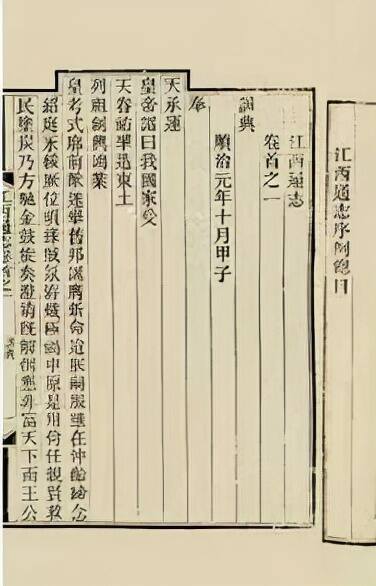 江西通志序例總目
江西通志
卷首之一
訓典
順治元年十月甲子
奉
天承運
皇帝詔曰我國家受
天眷祐肇迹東土
列祖創興鴻業
皇考式廓前猷遂舉舊邦誕膺新命迨朕嗣服雖在沖齡締念
紹庭永綏厥位頃緣賊氛洊熾極禍中原是用倚任親賢救
民塗炭乃方馳金鼓旋奏澄清既解倒懸非富天下而王公
江西通志卷首之一